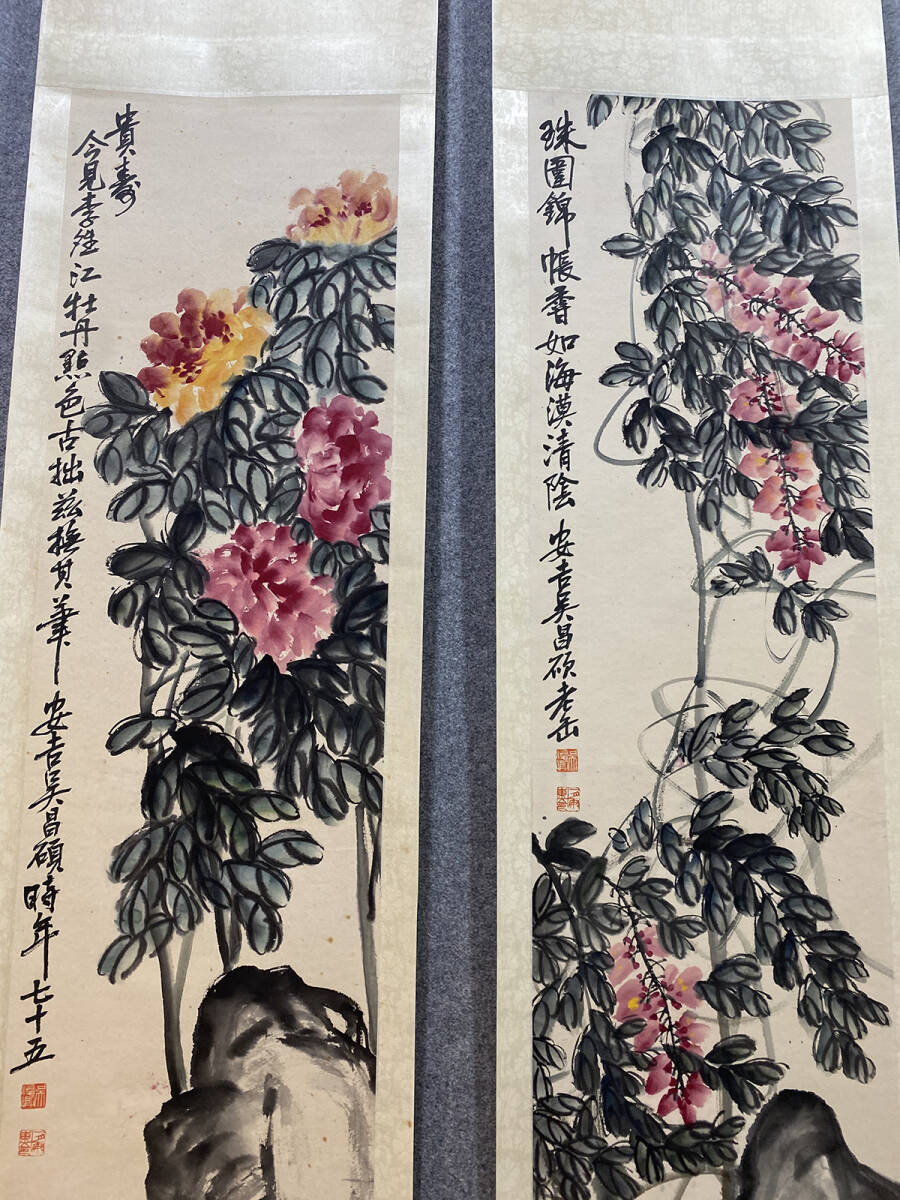 貴壽
今見李復江牡丹點色古拙茲撫其筆
安吉吳昌碩時年七十五
珠圍錦帳香如海漠清陰
安吉吳昌碩老缶